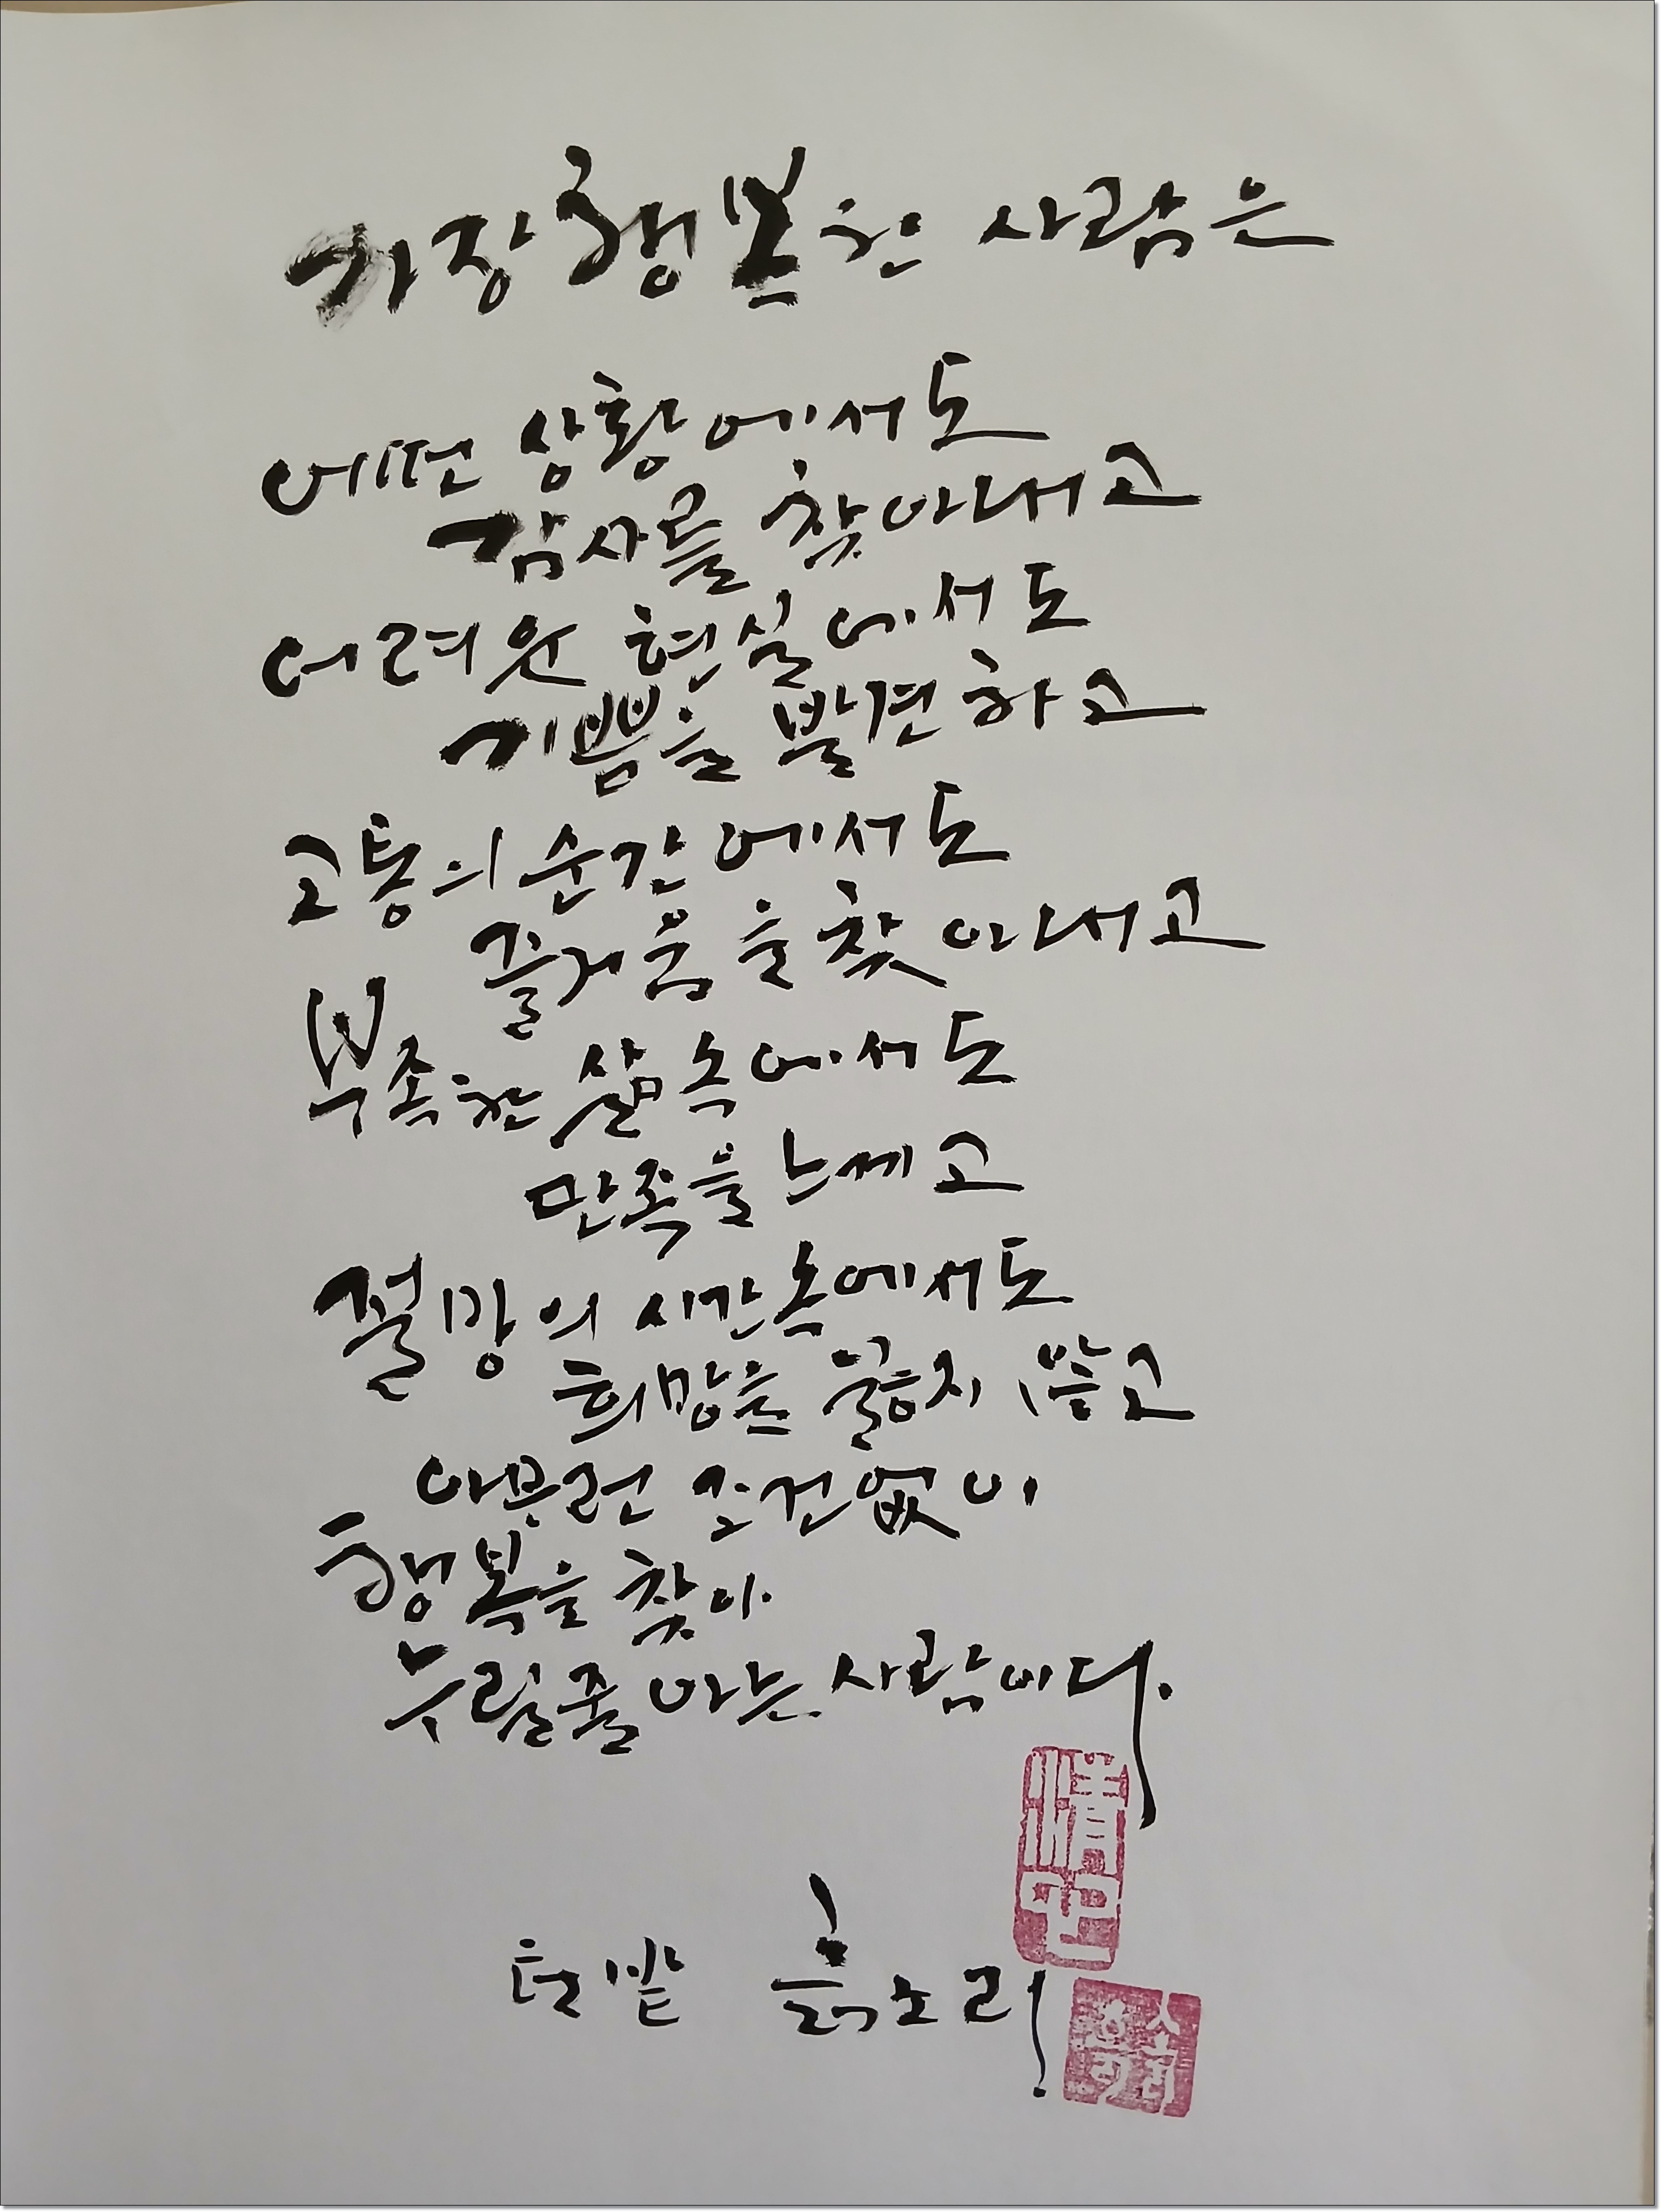 가장 행복한 사람은
어떤 상황에서도
감사를 찾아내고
어려운 현실에서도
기쁨을 발견하고
고통의 순간에서도
즐거움을 찾아내고
부족한 삶 속에서도
만족을 느끼고
절망의 시간속에서도
희망을 잃지 않고
아무런 조건없이
행복을 찾아
누릴줄 아는 사람이다.
텃밭 흙소리